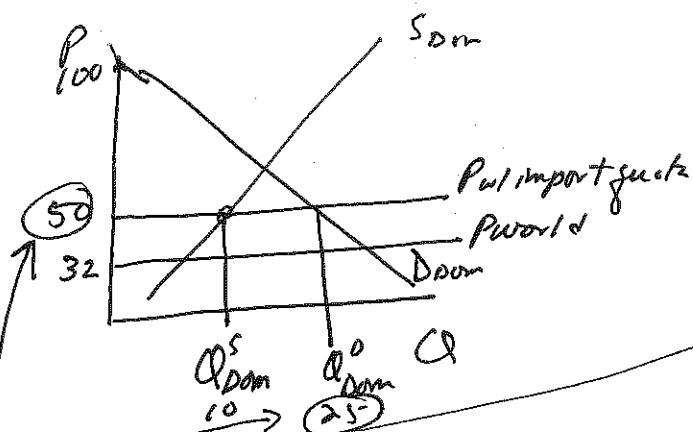 P
S Dom
100
P w/ import quota
50
P world
32
D Dom
Q S Dom
Q D Dom
Q
10
25